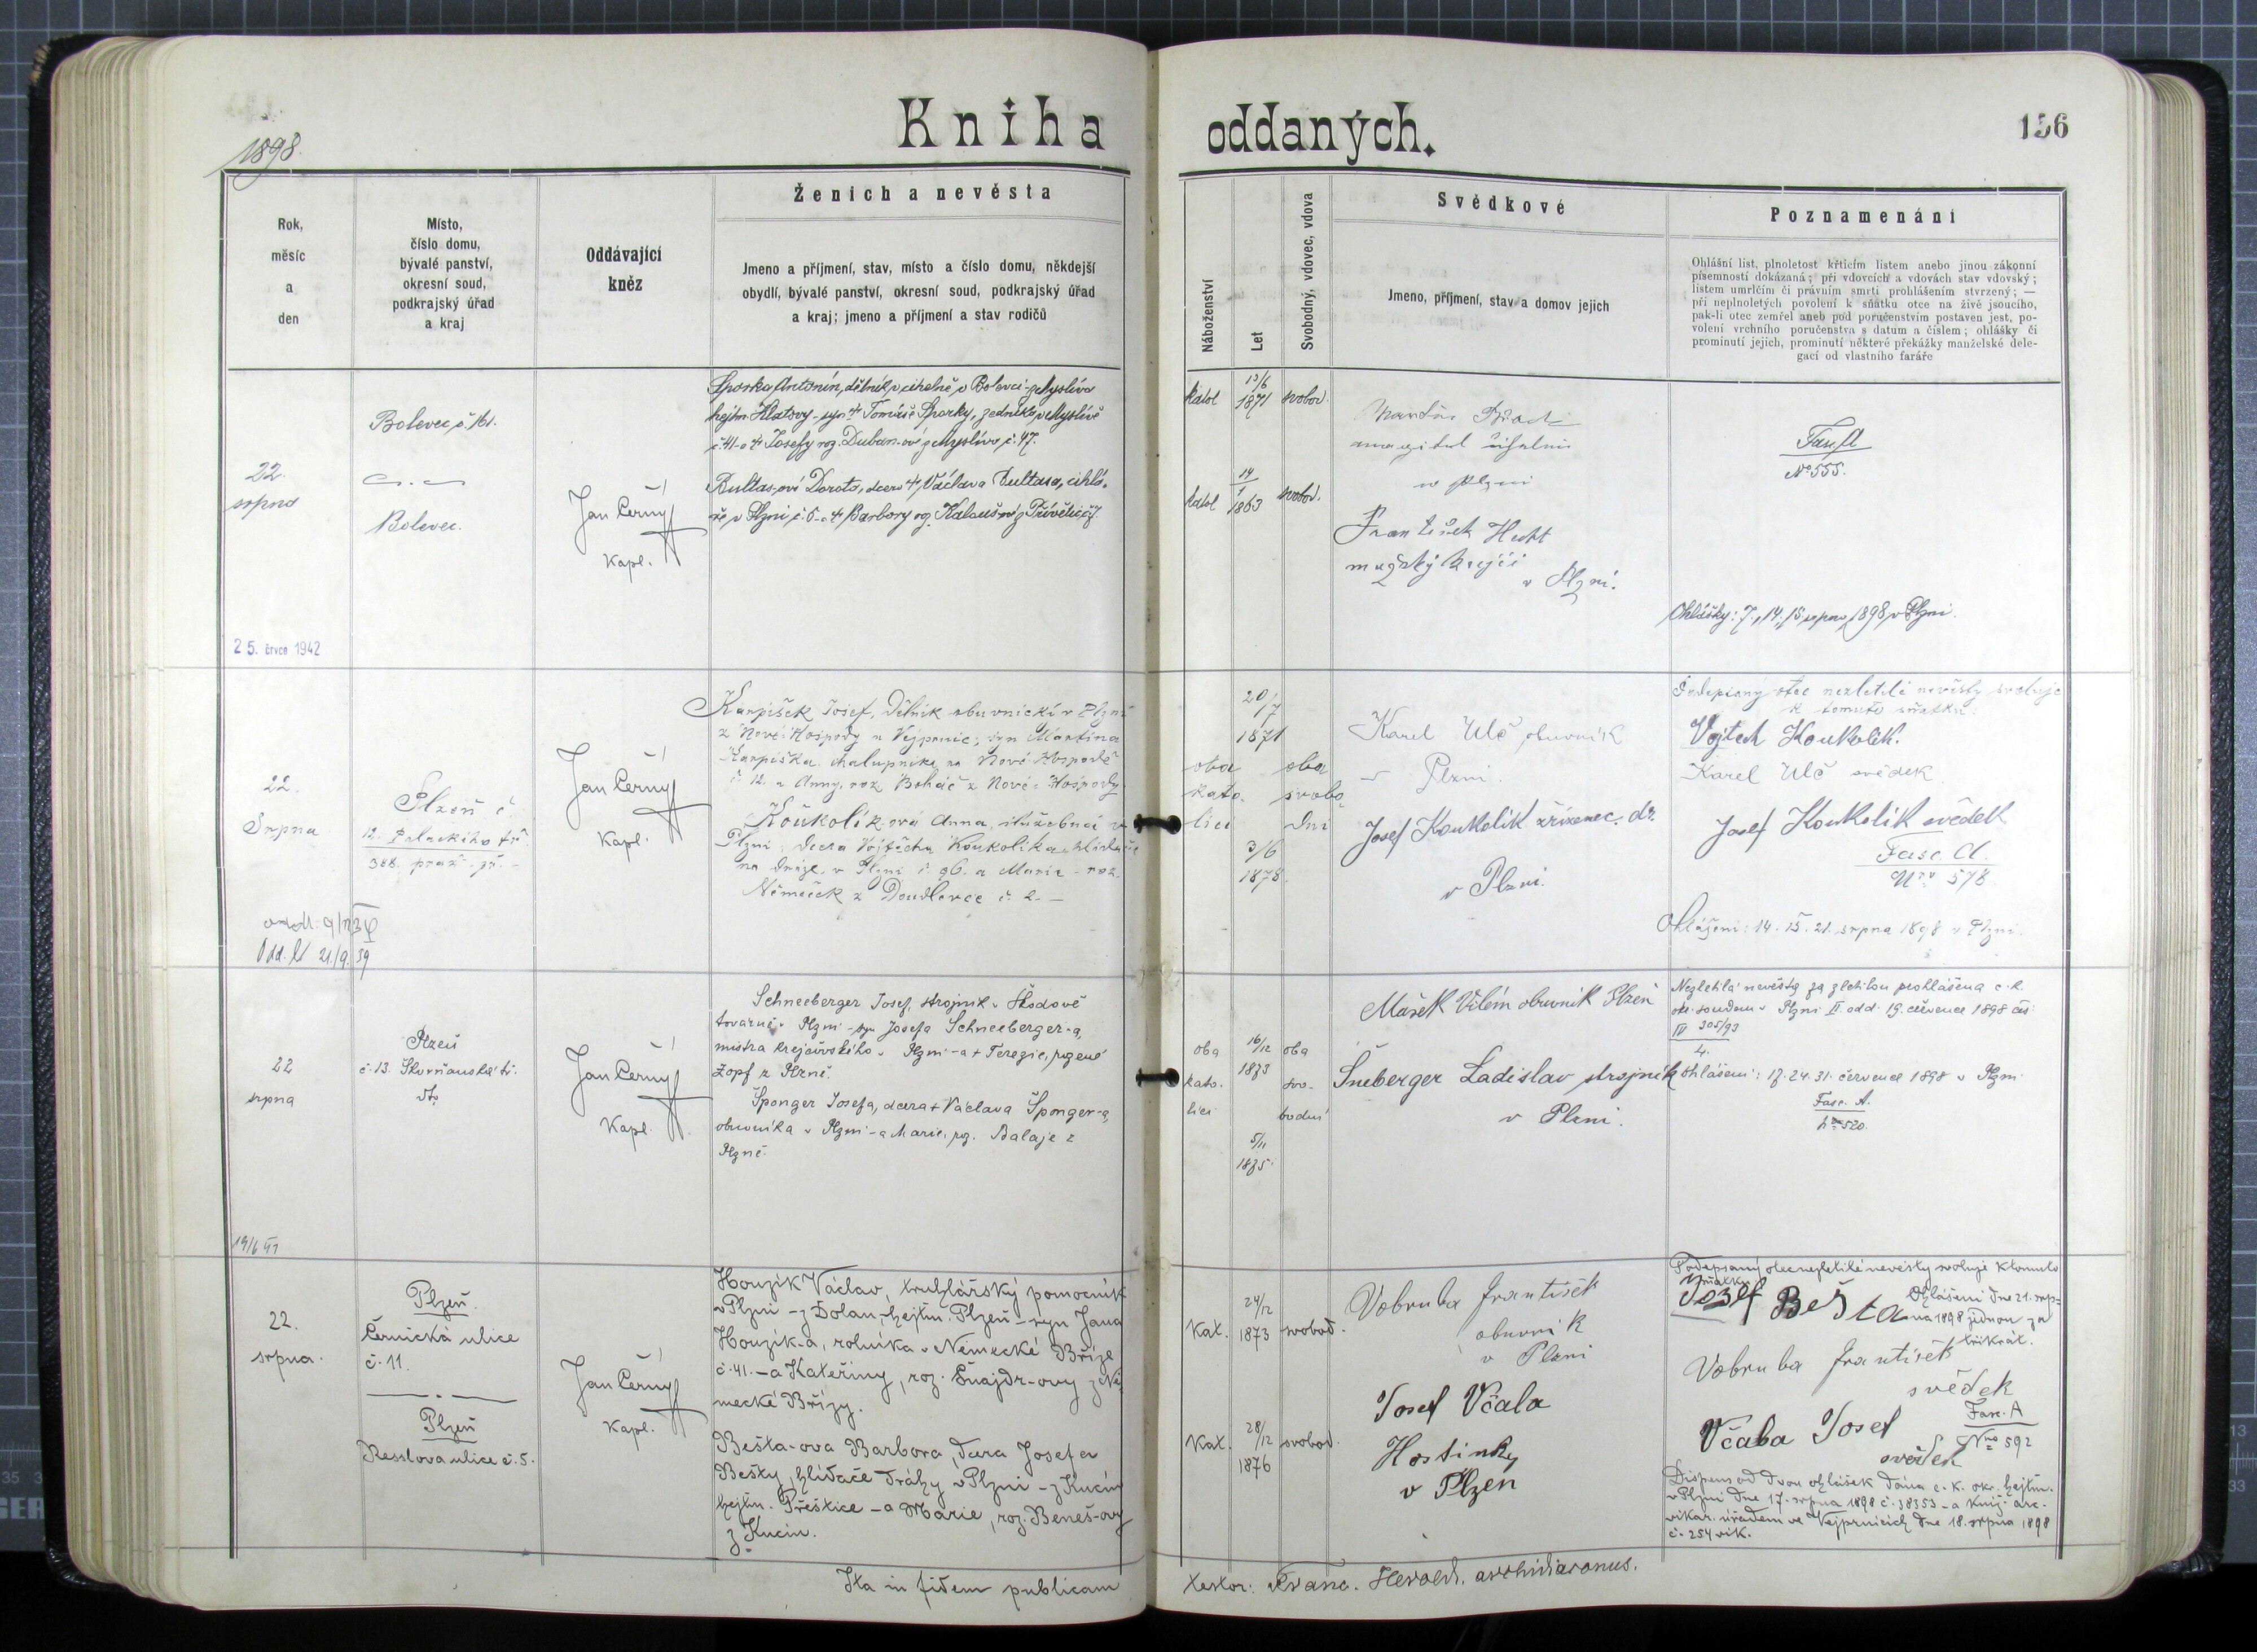 1898.
Kniha oddaných.
156
Rok,
měsíc
a
den
Místo,
číslo domu,
bývalé panství,
okresní soud,
podkrajský úřad
a kraj
Oddávající
kněz
Ženich a nevěsta
Jmeno a příjmení, stav, místo a číslo domu, někdejší
obydlí, bývalé panství, okresní soud, podkrajský úřad
a kraj; jmeno a příjmení a stav rodičů
Náboženství
Let
Svobodný, vdovec, vdova
Svědkové
Jmeno, příjmení, stav a domov jejich
Poznamenání
Ohlášní list, plnoletost křticím listem anebo jinou zákonní
písemností dokázaná; při vdovcích a vdovách stav vdovský;
listem umrlčím či právním smrti prohlášením stvrzený; —
při neplnoletých povolení k sňatku otce na živě jsoucího,
pak-li otec zemřel aneb pod poručenstvím postaven jest, po-
volení vrchního poručenstva s datum a číslem; ohlášky či
prominutí jejich, prominutí některé překážky manželské dele-
gací od vlastního faráře
22.
srpna
25. červce 1942
Bolevec č. 161.
Bolevec.
Jan Černý
Kapl.
Sporka Antonín, dělník v cihelně v Bolevci - z Myslíva
hejtm. Klatovy - syn † Tomáše Sporky, zedníka v Myslívě
č. 41 - a † Josefy roz. Duban-ové z Myslíva č. 47.
Bultas-ová Dorota, dcera † Václava Bultasa, cihlá-
ře v Plzni č. 5 - a † Barbory roz.
katol
13/6
1871
svobod.
katol
14
1863
svobod.
v Plzni
František Hecht
mužský krejčí
v Plzni.
Fasc. A
No 555.
Ohlášky: 7., 14., 15. srpna 1898 v Plzni.
22.
Srpna
Odd. l. 21./9. 39
Plzeň č.
12. Palackého tř.
388. praž. př. -
Jan Černý
Kapl.
Karpíšek Josef, dělník obuvnický v Plzni
z Nové Hospody u Vejprnic; syn Martina
Karpíška chalupníka na Nové Hospodě
č. 12. a Anny, roz. Boháč z Nové - Hospody.
Koukolík-ová Anna, služebná v
Plzni; dcera Vojtěcha Koukolíka, hlídače
na dráze v Plzni č. 96. a Marie - roz.
Němeček z Doudlevce č. 2. -
oba
kato-
líci
20/7
1871
3/6
1878.
oba
svobo
dni
Karel Ulč obuvník
v Plzni.
Josef Koukolik zřízenec dr.
v Plzni.
Podepsaný otec nezletilé nevěsty svoluje
k tomuto sňatku:
Vojtech Koukolik.
Karel Ulč svědek
Josef Koukolik svědek
Fasc. A.
Nro 578
Ohlášeni: 14. 15. 21. srpna 1898 v Plzni.
22
srpna
19/6 41
Plzeň
č. 13. Skvrňanská tř.
Jan Černý
Kapl.
Schneeberger Josef, strojník v Škodově
továrně v Plzni - syn Josefa Schneeberger-a,
mistra krejčovského v Plzni - a † Terezie, rozené
Zopf z Plzně.
Šponger Josefa, dcera † Václava Šponger-a,
obuvníka v Plzni - a Marie, roz. Balaje z
Plzně.
oba
kato-
líci
16/12
1873
5/11
1875.
oba
svo-
bodní
Mašek Vilém obuvník Plzeň
Šneberger Ladislav strojník
v Plzni.
Nezletilá nevěsta za zletilou prohlášena c. k.
okr. soudem v Plzni II. odd. 19. července 1898 čís:
IV 305/93
4.
Ohlášeni: 17. 24. 31. července 1898 v Plzni
Fasc. A.
Nro 520.
22.
srpna.
Plzeň.
Černická ulice
č. 11.
Plzeň
Resslova ulice č. 5.
Jan Černý
Kapl.
Houzík Václav, truhlářský pomocník
v Plzni - z Dolan, hejtm. Plzeň - syn Jana
Houzík-a, rolníka v Německé Bříze
č. 41. - a Kateřiny, roz. Šnajdr-ovy z Ně-
mecké Břízy.
Bešta-ova Barbora, dcera Josefa
Bešty, hlídače dráhy v Plzni - z Kucín
hejtm. Přeštice - a Marie, roz. Beneš-ovy
z Kucín.
Kat.
24/12
1873
svobod.
Kat.
28/12
1876
svobod.
Vobruba František
obuvnik
v Plzni
Josef Včala
Hostinky
v Plzen
Podepsaný otec nezletilé nevěsty svoluje k tomuto
sňatku
Josef Bešta
Ohlášeni dne 21. srp-
na 1898 jednou za
třikrát.
Vobruba František
svědek
Fasc. A
Nro 592
Včala Josef
svědek
Dispens od dvou ohlášek dána c. k. okr. hejtm.
v Plzni dne 17. srpna 1898 č. 38353 - a kníž. arc.
vikar. úřadem ve Vejprnicích dne 18. srpna 1898
č. 254 vik.
Ita in fidem publicam testor: Franc. Herold. archidiaconus.